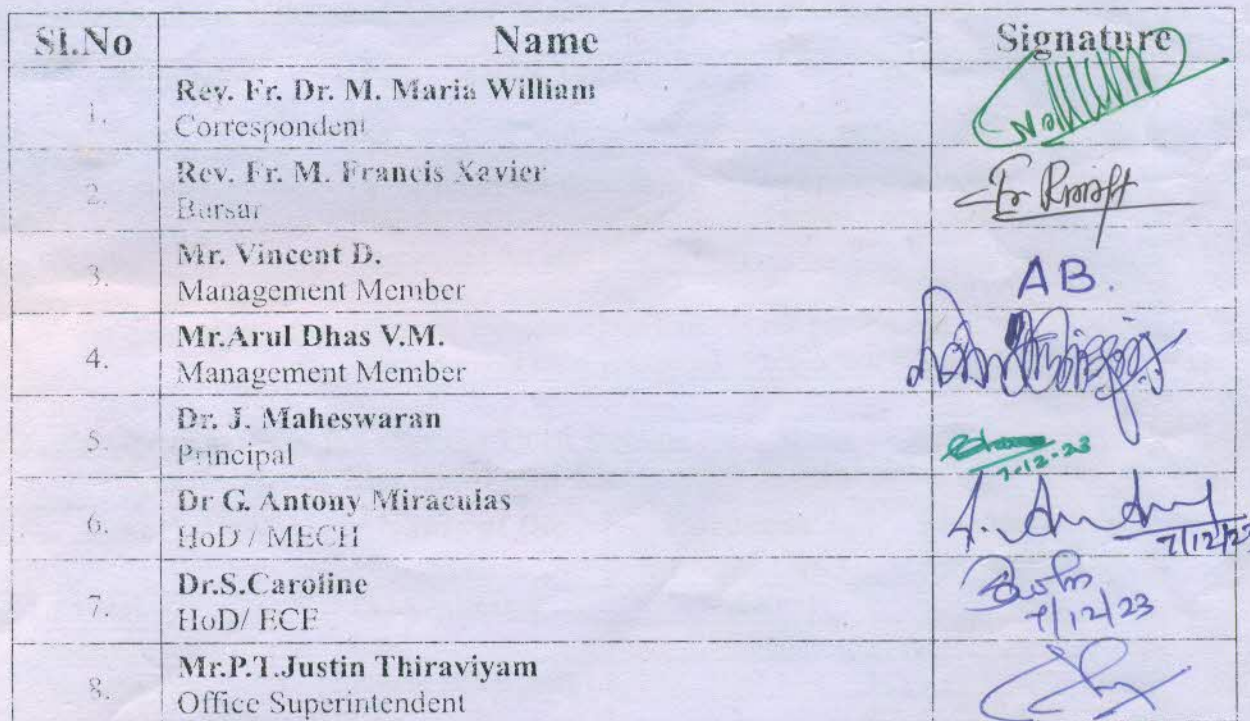 Sl.No Name Signature
1. Rev. Fr. Dr. M. Maria William
Correspondent
2. Rev. Fr. M. Francis Xavier
Bursar
3. Mr. Vincent D.
Management Member
AB.
4. Mr.Arul Dhas V.M.
Management Member
5. Dr. J. Maheswaran
Principal
7.12.23
6. Dr G. Antony Miraculas
HoD / MECH
7/12/23
7. Dr.S.Caroline
HoD/ ECE
7/12/23
8. Mr.P.T.Justin Thiraviyam
Office Superintendent